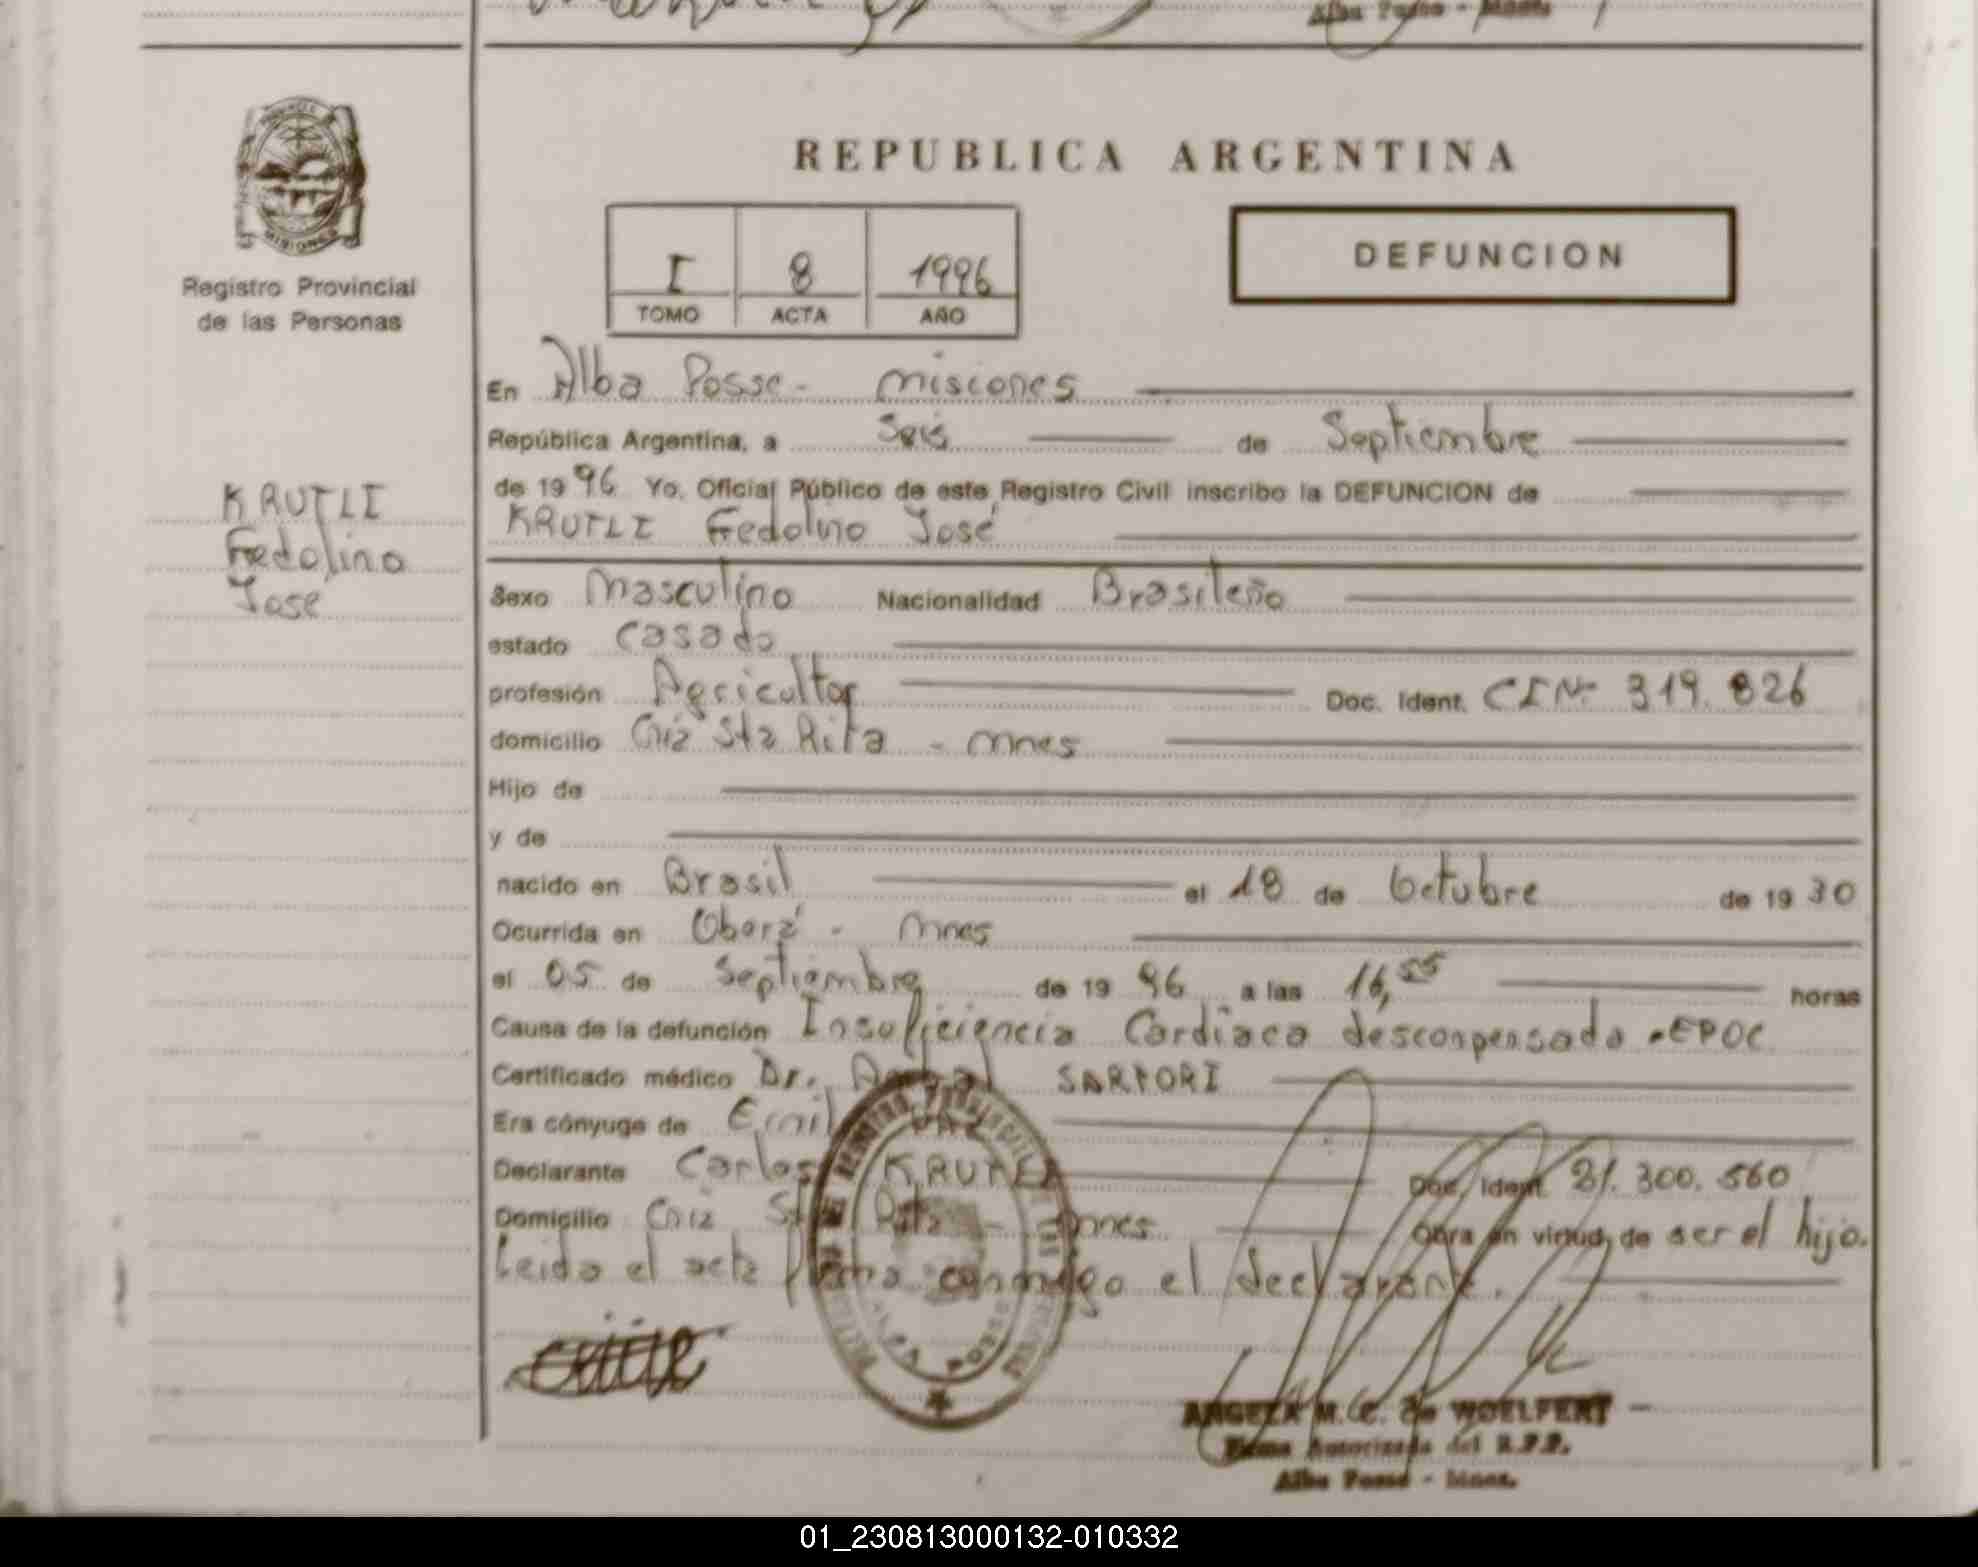 REPUBLICA ARGENTINA
PROVINCIA
MISIONES
Registro Provincial
de las Personas
I 8 1996
TOMO ACTA AÑO
DEFUNCION
KRUTLI
Fredolino
Jose
En Alba Posse - Misiones
República Argentina, a Seis de Septiembre
de 1996 Yo, Oficial Público de este Registro Civil inscribo la DEFUNCION de
KRUTLI Fredolino José
Sexo Masculino Nacionalidad Brasileño
estado Casado
profesión Agricultor Doc. Ident. CIN° 319.826
domicilio Sta Rita - Mnes
Hijo de
y de
nacido en Brasil el 18 de Octubre de 1930
Ocurrida en Oberá - Mnes
el 05 de Septiembre de 1996 a las 16,55 horas
Causa de la defunción Insuficiencia Cardiaca desconpensada - EPOC
Certificado médico Dr. SARTORI
Era cónyuge de PAZ
Declarante Carlos KRUTLI Doc. Ident. 21.300.560
Domicilio Sta Rita - Mnes Obra en virtud de ser el hijo.
Leida el acta firma conmigo el declarante.
ALBA POSSE
ANGELA M. C. de WOELFERT
Firma Autorizada del R.P.P.
Alba Posse - Mnes.
01_230813000132-010332